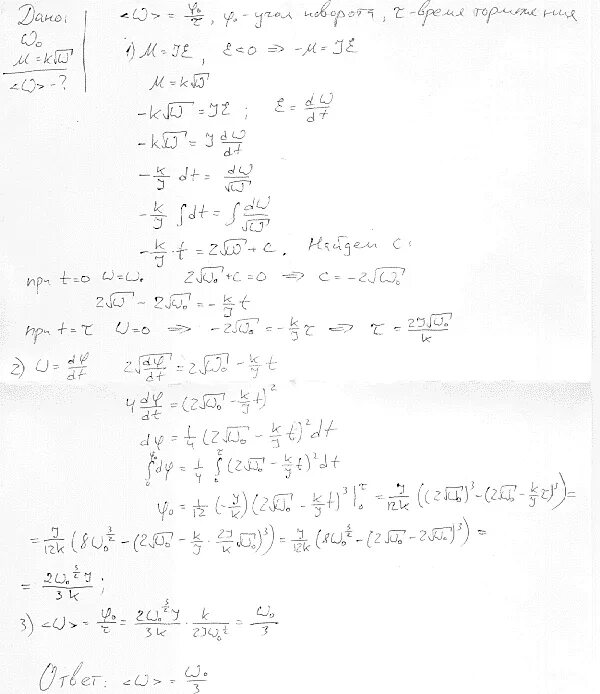 Дано:
ω₀
M = k√ω
<ω> - ?
<ω> = φ₀/τ, φ₀ - угол поворота, τ - время торможения
1) M = Jε, ε < 0 ⇒ -M = Jε
M = k√ω
-k√ω = Jε ; ε = dω/dt
-k√ω = J dω/dt
-k/J dt = dω/√ω
-k/J ∫dt = ∫dω/√ω
-k/J · t = 2√ω + c. Найдем c:
при t=0 ω=ω₀ 2√ω₀ + c = 0 ⇒ c = -2√ω₀
2√ω - 2√ω₀ = -k/J t
при t=τ ω=0 ⇒ -2√ω₀ = -k/J τ ⇒ τ = 2J√ω₀/k
2) ω = dφ/dt 2√(dφ/dt) = 2√ω₀ - k/J t
4 dφ/dt = (2√ω₀ - k/J t)²
dφ = 1/4 (2√ω₀ - k/J t)² dt
∫₀^φ₀ dφ = 1/4 ∫₀^τ (2√ω₀ - k/J t)² dt
φ₀ = 1/12 (-J/k) (2√ω₀ - k/J t)³ |₀^τ = J/12k ((2√ω₀)³ - (2√ω₀ - k/J τ)³) =
= J/12k (8ω₀^(3/2) - (2√ω₀ - k/J · 2J/k √ω₀)³) = J/12k (8ω₀^(3/2) - (2√ω₀ - 2√ω₀)³) =
= 2ω₀^(3/2) J / 3k ;
3) <ω> = φ₀/τ = 2ω₀^(3/2) J / 3k · k / 2Jω₀^½ = ω₀/3
Ответ: <ω> = ω₀/3